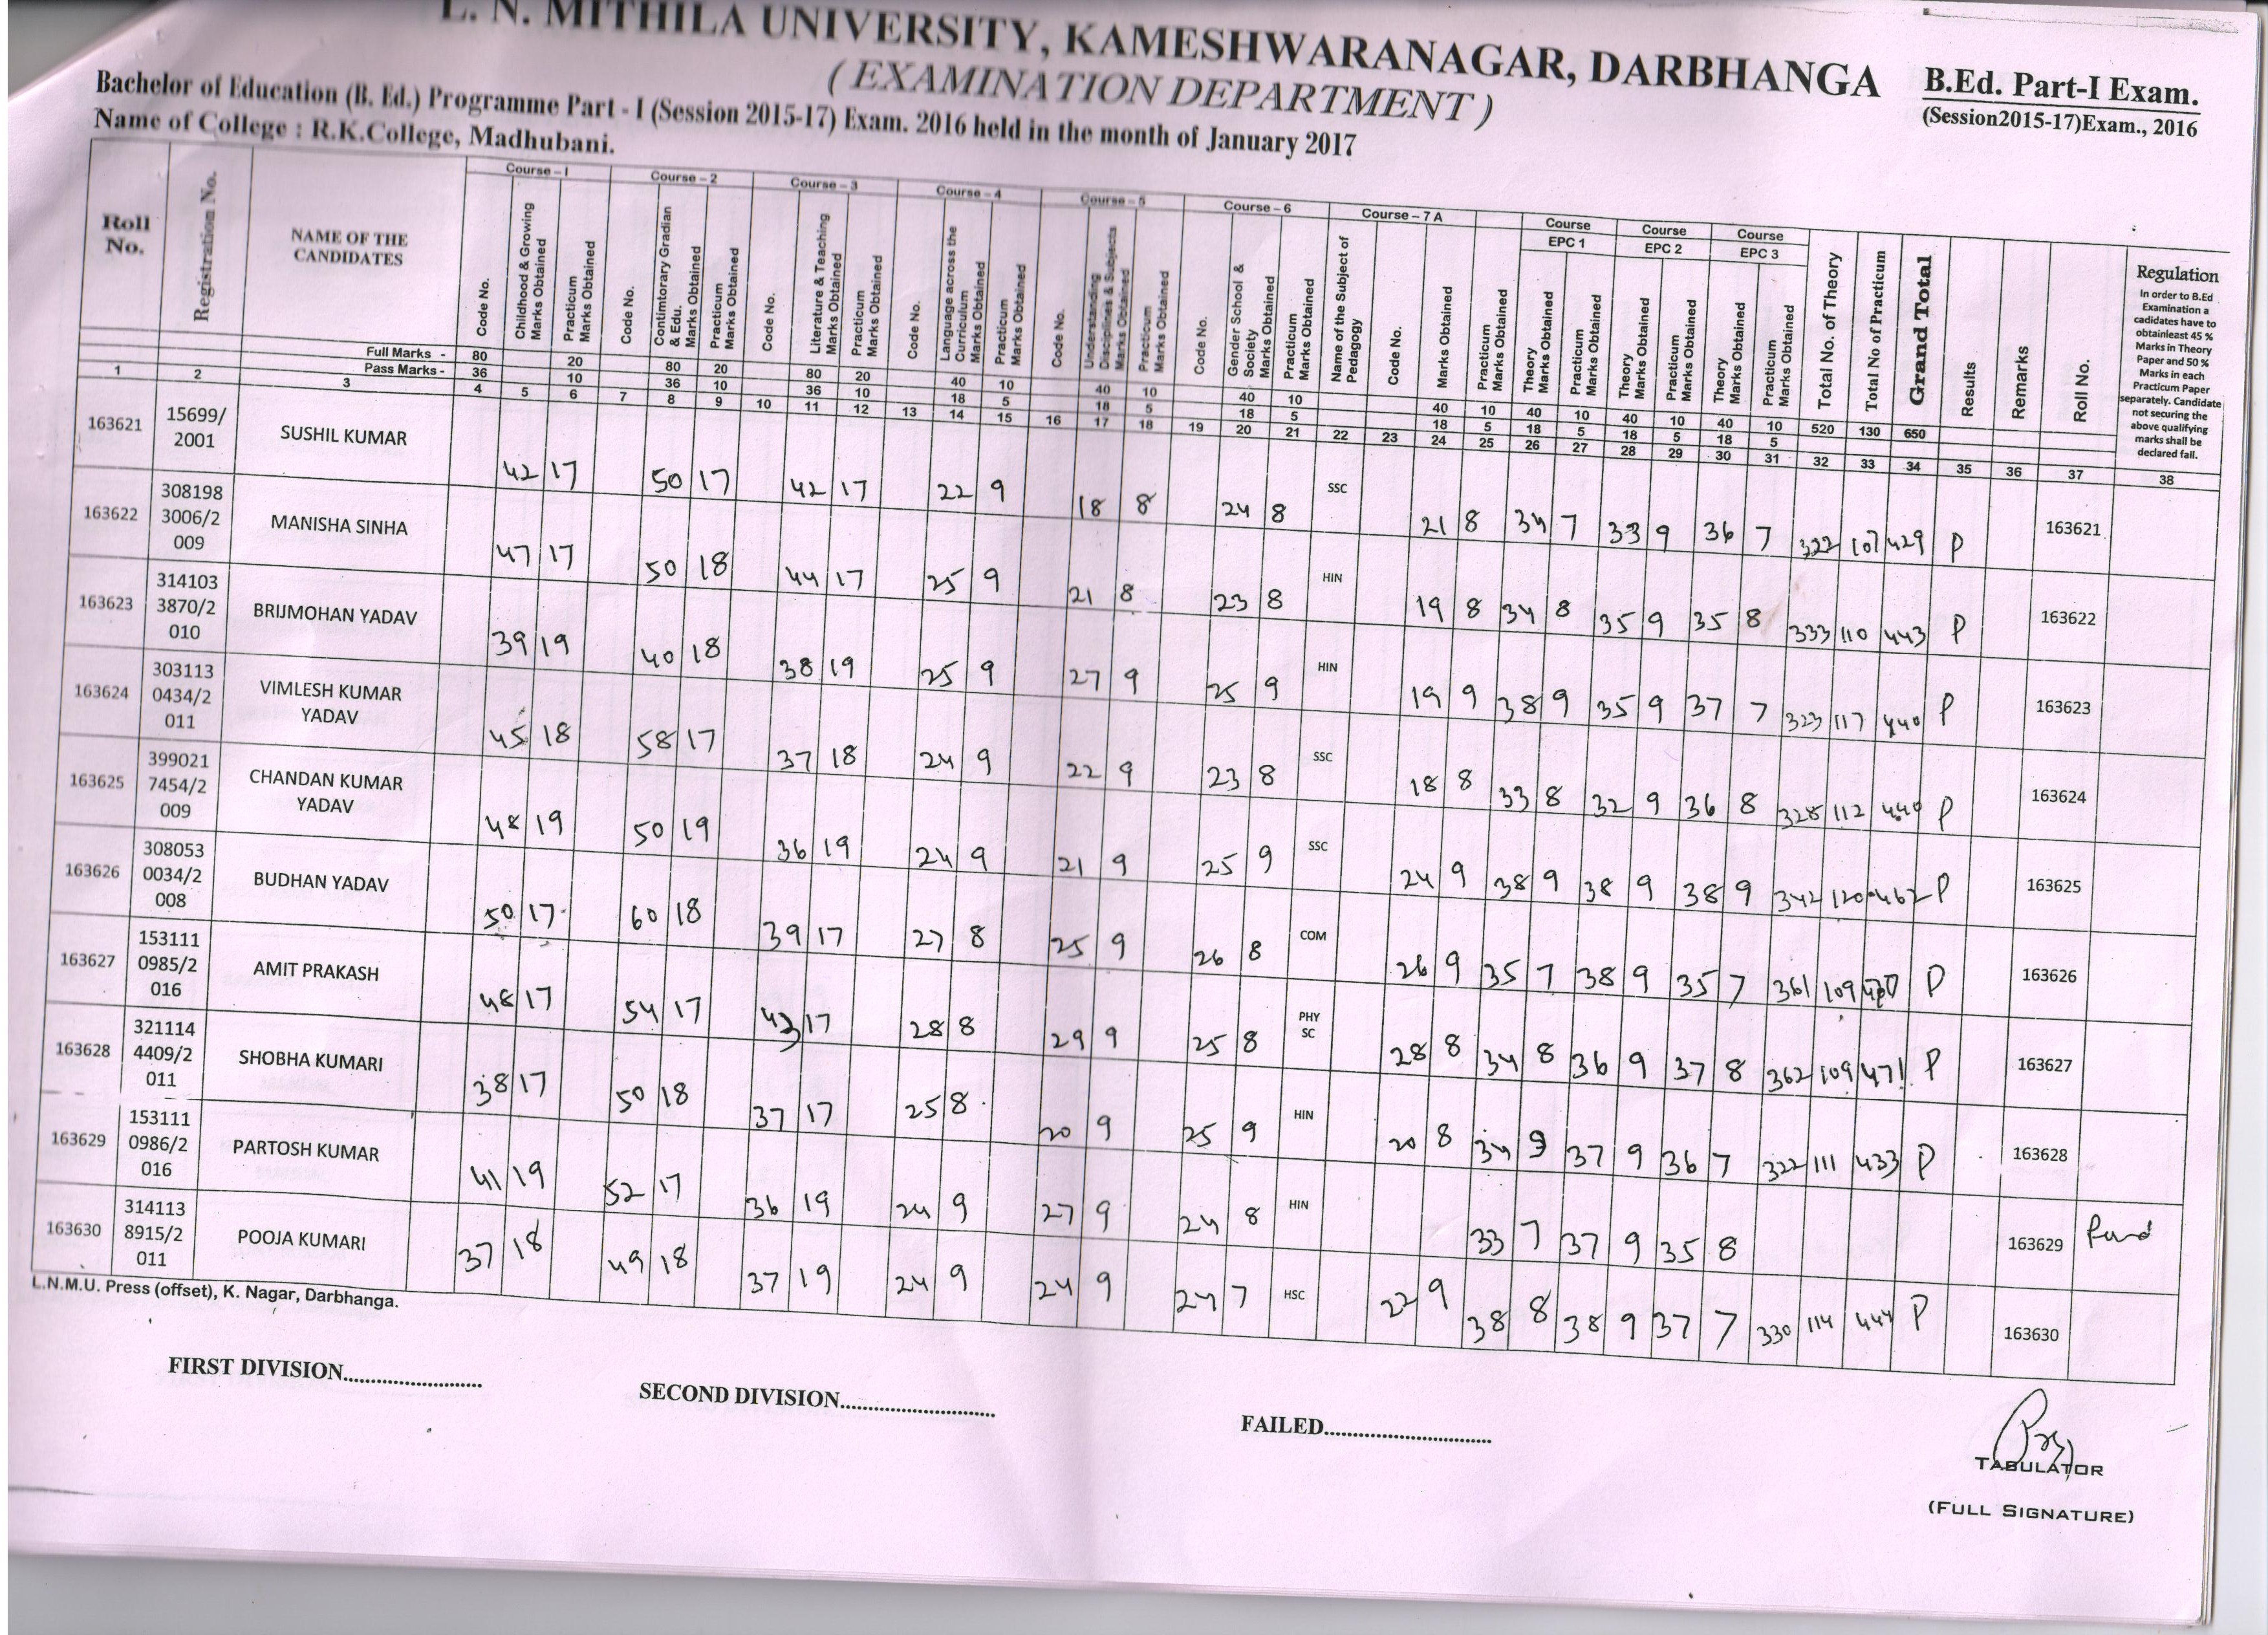 L. N. MITHILA UNIVERSITY, KAMESHWARANAGAR, DARBHANGA
( EXAMINATION DEPARTMENT )
B.Ed. Part-I Exam.
(Session2015-17)Exam., 2016
Bachelor of Education (B. Ed.) Programme Part - I (Session 2015-17) Exam. 2016 held in the month of January 2017
Name of College : R.K.College, Madhubani.
Roll No. Registration No. NAME OF THE CANDIDATES
Course - I Code No. Childhood & Growing Marks Obtained Practicum Marks Obtained
Course - 2 Code No. Contimtorary Gradian & Edu. Marks Obtained Practicum Marks Obtained
Course - 3 Code No. Literature & Teaching Marks Obtained Practicum Marks Obtained
Course - 4 Code No. Language across the Curriculum Marks Obtained Practicum Marks Obtained
Course - 5 Code No. Understanding Disciplines & Subjects Marks Obtained Practicum Marks Obtained
Course - 6 Code No. Gender School & Society Marks Obtained Practicum Marks Obtained
Course - 7 A Name of the Subject of Pedagogy Code No. Marks Obtained Practicum Marks Obtained
Course EPC 1 Theory Marks Obtained Practicum Marks Obtained
Course EPC 2 Theory Marks Obtained Practicum Marks Obtained
Course EPC 3 Theory Marks Obtained Practicum Marks Obtained
Total No. of Theory Total No of Practicum Grand Total Results Remarks Roll No.
Regulation
In order to B.Ed
Examination a
cadidates have to
obtainleast 45 %
Marks in Theory
Paper and 50 %
Marks in each
Practicum Paper
separately. Candidate
not securing the
above qualifying
marks shall be
declared fall.
Full Marks - 80 20 80 20 80 20 40 10 40 10 40 10 40 10 40 10 40 10 40 10 520 130 650
Pass Marks - 36 10 36 10 36 10 18 5 18 5 18 5 18 5 18 5 18 5 18 5
1 2 3 4 5 6 7 8 9 10 11 12 13 14 15 16 17 18 19 20 21 22 23 24 25 26 27 28 29 30 31 32 33 34 35 36 37 38
163621 15699/2001 SUSHIL KUMAR 42 17 50 17 42 17 22 9 18 8 24 8 SSC 21 8 34 7 33 9 36 7 322 107 429 P 163621
163622 3081983006/2009 MANISHA SINHA 47 17 50 18 44 17 25 9 21 8 23 8 HIN 19 8 34 8 35 9 35 8 333 110 443 P 163622
163623 3141033870/2010 BRIJMOHAN YADAV 39 19 40 18 38 19 25 9 27 9 25 9 HIN 19 9 38 9 35 9 37 7 323 117 440 P 163623
163624 3031130434/2011 VIMLESH KUMAR YADAV 45 18 58 17 37 18 24 9 22 9 23 8 SSC 18 8 33 8 32 9 36 8 328 112 440 P 163624
163625 3990217454/2009 CHANDAN KUMAR YADAV 48 19 50 19 36 19 24 9 21 9 25 9 SSC 24 9 38 9 38 9 38 9 342 120 462 P 163625
163626 3080530034/2008 BUDHAN YADAV 50 17 60 18 39 17 27 8 25 9 26 8 COM 26 9 35 7 38 9 35 7 361 109 470 P 163626
163627 1531110985/2016 AMIT PRAKASH 48 17 54 17 43 17 28 8 29 9 25 8 PHY SC 28 8 34 8 36 9 37 8 362 109 471 P 163627
163628 3211144409/2011 SHOBHA KUMARI 38 17 50 18 37 17 25 8 20 9 25 9 HIN 20 8 34 9 37 9 36 7 322 111 433 P 163628
163629 1531110986/2016 PARTOSH KUMAR 41 19 52 17 36 19 24 9 27 9 24 8 HIN 33 7 37 9 35 8 163629
163630 3141138915/2011 POOJA KUMARI 37 18 49 18 37 19 24 9 24 9 24 7 HSC 22 9 38 8 38 9 37 7 330 114 444 P 163630
L.N.M.U. Press (offset), K. Nagar, Darbhanga.
FIRST DIVISION..............................
SECOND DIVISION..............................
FAILED..............................
TABULATOR
(FULL SIGNATURE)